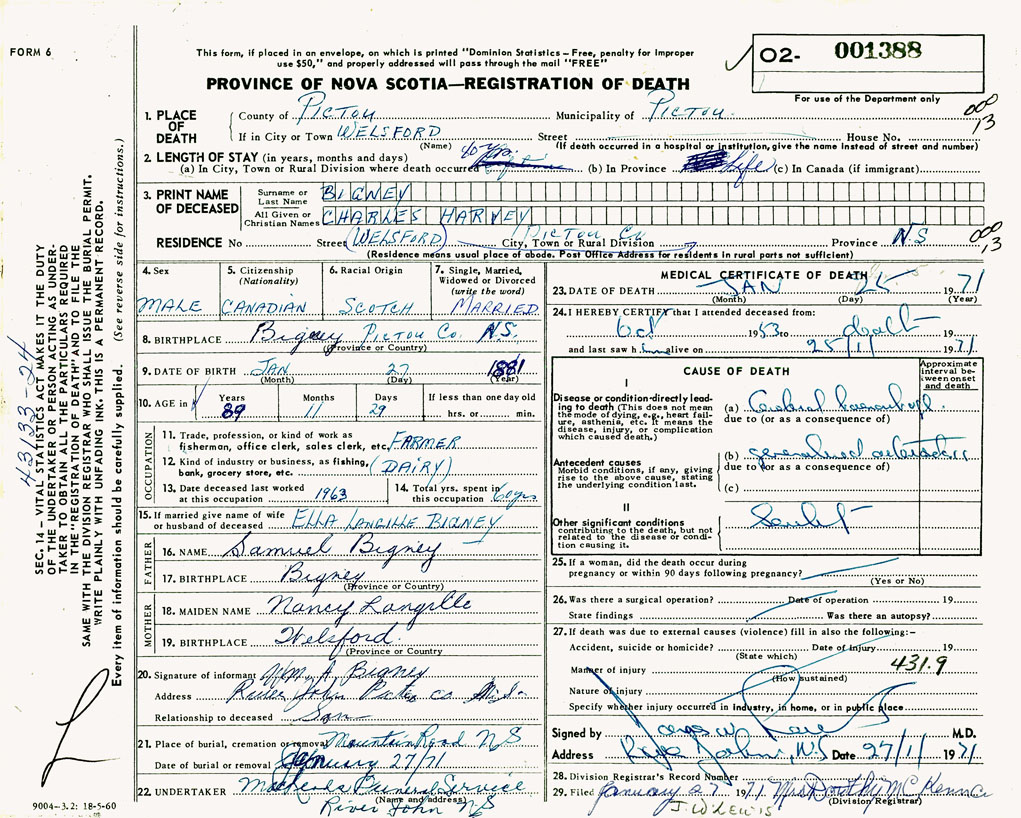 FORM 6
This form, if placed in an envelope, on which is printed "Dominion Statistics – Free, penalty for improper
use $50," and properly addressed will pass through the mail "FREE"
PROVINCE OF NOVA SCOTIA—REGISTRATION OF DEATH
O2- 001388
For use of the Department only
1. PLACE OF DEATH
County of PICTOU Municipality of PICTOU
000
13
If in City or Town WELSFORD Street House No.
(Name) (If death occurred in a hospital or institution, give the name instead of street and number)
2. LENGTH OF STAY (in years, months and days)
(a) In City, Town or Rural Division where death occurred 40 yrs. (b) In Province Life (c) In Canada (if immigrant)
3. PRINT NAME OF DECEASED
Surname or Last Name BIGNEY
All Given or Christian Names CHARLES HARVEY
RESIDENCE No Street (WELSFORD) PICTOU Co City, Town or Rural Division Province N.S
000
13
(Residence means usual place of abode. Post Office Address for residents in rural parts not sufficient)
4. Sex
MALE
5. Citizenship (Nationality)
CANADIAN
6. Racial Origin
SCOTCH
7. Single, Married, Widowed or Divorced (write the word)
MARRIED
8. BIRTHPLACE Bigney PICTOU Co. N.S.
(Province or Country)
9. DATE OF BIRTH JAN 27 1881
(Month) (Day) (Year)
10. AGE in
Years Months Days If less than one day old
89 11 29 hrs. or min.
OCCUPATION
11. Trade, profession, or kind of work as
fisherman, office clerk, sales clerk, etc. FARMER
12. Kind of industry or business, as fishing,
bank, grocery store, etc. (DAIRY)
13. Date deceased last worked
at this occupation 1963
14. Total yrs. spent in
this occupation 60 yrs
15. If married give name of wife
or husband of deceased ELLA LANGILLE BIGNEY
FATHER
16. NAME Samuel Bigney
17. BIRTHPLACE Bigney
(Province or Country)
MOTHER
18. MAIDEN NAME Nancy Langille
19. BIRTHPLACE Welsford
(Province or Country)
20. Signature of informant Wm. A. Bigney
Address River John Pictou co N.S.
Relationship to deceased Son
21. Place of burial, cremation or removal Mountain Road NS
Date of burial or removal January 27/71
22. UNDERTAKER Funeral Service
(Name and address)
River John NS
MEDICAL CERTIFICATE OF DEATH
23. DATE OF DEATH JAN 25 1971
(Month) (Day) (Year)
24. I HEREBY CERTIFY that I attended deceased from:
Oct 1953 to death 19
and last saw h im alive on 25/1/ 1971.
CAUSE OF DEATH
Approximate interval between onset and death
I
Disease or condition-directly leading
to death (This does not mean
the mode of dying, e.g., heart failure,
asthenia, etc. It means the
disease, injury, or complication
which caused death.)
(a) Cerebral haemorrhage
due to (or as a consequence of)
Antecedent causes
Morbid conditions, if any, giving
rise to the above cause, stating
the underlying condition last.
(b) generalised
due to (or as a consequence of)
(c)
II
Other significant conditions
contributing to the death, but not
related to the disease or condition
causing it.
25. If a woman, did the death occur during
pregnancy or within 90 days following pregnancy?
(Yes or No)
26. Was there a surgical operation? Date of operation 19
State findings Was there an autopsy?
27. If death was due to external causes (violence) fill in also the following:–
Accident, suicide or homicide? Date of injury 19
(State which)
Manner of injury 431.9
(How sustained)
Nature of injury
Specify whether injury occurred in industry, in home, or in public place
Signed by M.D.
Address River John, N.S Date 27/1/ 1971
28. Division Registrar's Record Number
29. Filed January 27 1971 Mrs Dorothy McKenna
(Division Registrar)
J.W. LEWIS
SEC. 14 – VITAL STATISTICS ACT MAKES IT THE DUTY
OF THE UNDERTAKER OR PERSON ACTING AS UNDER-
TAKER TO OBTAIN ALL THE PARTICULARS REQUIRED
IN THE "REGISTRATION OF DEATH" AND TO FILE THE
SAME WITH THE DIVISION REGISTRAR WHO SHALL ISSUE THE BURIAL PERMIT.
WRITE PLAINLY WITH UNFADING INK. THIS IS A PERMANENT RECORD.
Every item of information should be carefully supplied. (See reverse side for instructions.)
43133-24
9004-3.2: 18-5-60